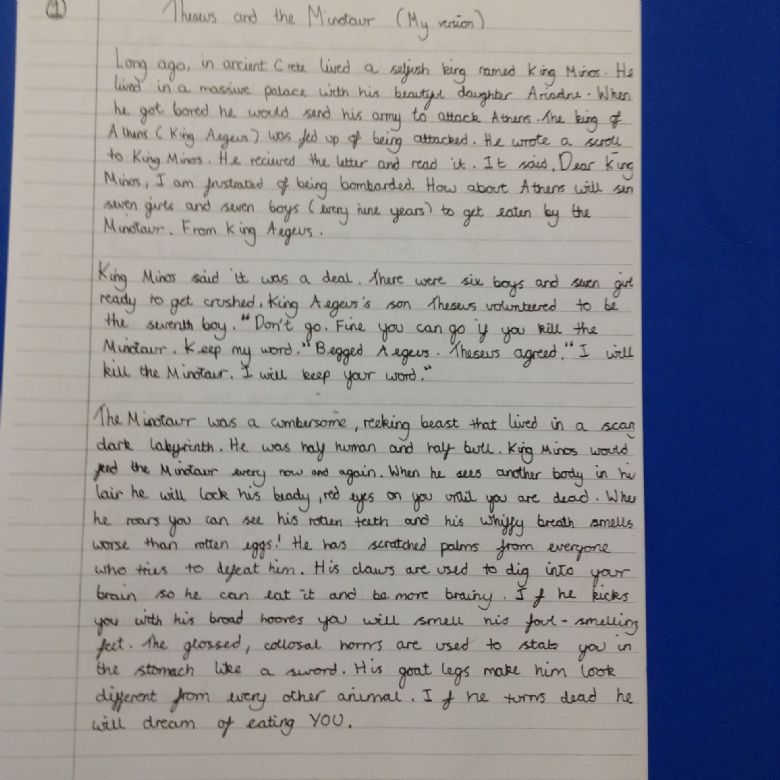 1
Theseus and the Minotaur (My version)
Long ago, in ancient Crete lived a selfish king named King Minos. He
lived in a massive palace with his beautiful daughter Ariadne. When
he got bored he would send his army to attack Athens. The king of
Athens (King Aegeus) was fed up of being attacked. He wrote a scroll
to King Minos. He recieved the letter and read it. It said, Dear King
Minos, I am frustrated of being bombarded. How about Athens will sen
seven girls and seven boys (every nine years) to get eaten by the
Minotaur. From King Aegeus.
King Minos said it was a deal. There were six boys and seven girl
ready to get crushed. King Aegeus's son Theseus volunteered to be
the seventh boy. "Don't go. Fine you can go if you kill the
Minotaur. Keep my word." Begged Aegeus. Theseus agreed. "I will
kill the Minotaur. I will keep your word."
The Minotaur was a cumbersome, reeking beast that lived in a scary
dark labyrinth. He was half human and half bull. King Minos would
feed the Minotaur every now and again. When he sees another body in hi
lair he will lock his beady, red eyes on you until you are dead. When
he roars you can see his rotten teeth and his whiffy breath smells
worse than rotten eggs! He has scratched palms from everyone
who tries to defeat him. His claws are used to dig into your
brain so he can eat it and be more brainy. If he kicks
you with his broad hooves you will smell his foul-smelling
feet. The glossed, collosal horns are used to stab you in
the stomach like a sword. His goat legs make him look
different from every other animal. If he turns dead he
will dream of eating YOU.